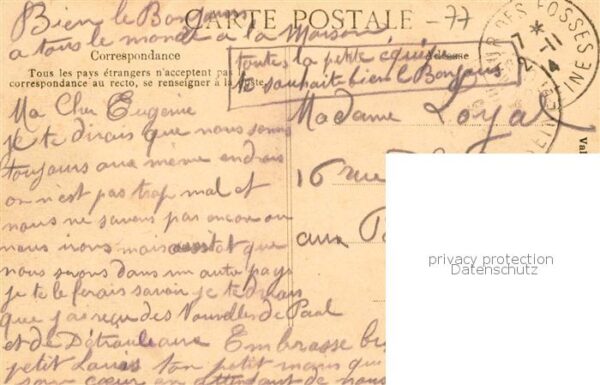 Bien le Bonjour
CARTE POSTALE
-77
a tous le monde a la Maison
Correspondance
toute la petite équipe
te souhait bien le Bonjour
Tous les pays étrangers n'acceptent pas
correspondance au recto, se renseigner à la Poste
FOSSES
7 *
2 -11
14
SEINE
Ma Cher Eugenie
je te dirais que nous sommes
toujours aux même endrois
on n'est pas trop mal et
nous ne savons pas encore ou
nous irons mais aussitot que
nous serons dans un autre pays
je te le ferais savoir je te dirais
que j'ai reçu des Nouvelles de Paul
et de Embrasse
petit Louis ton petit maris que
son cœur en attendant de nous
Madame Loyal
16 rue
aux
privacy protection
Datenschutz